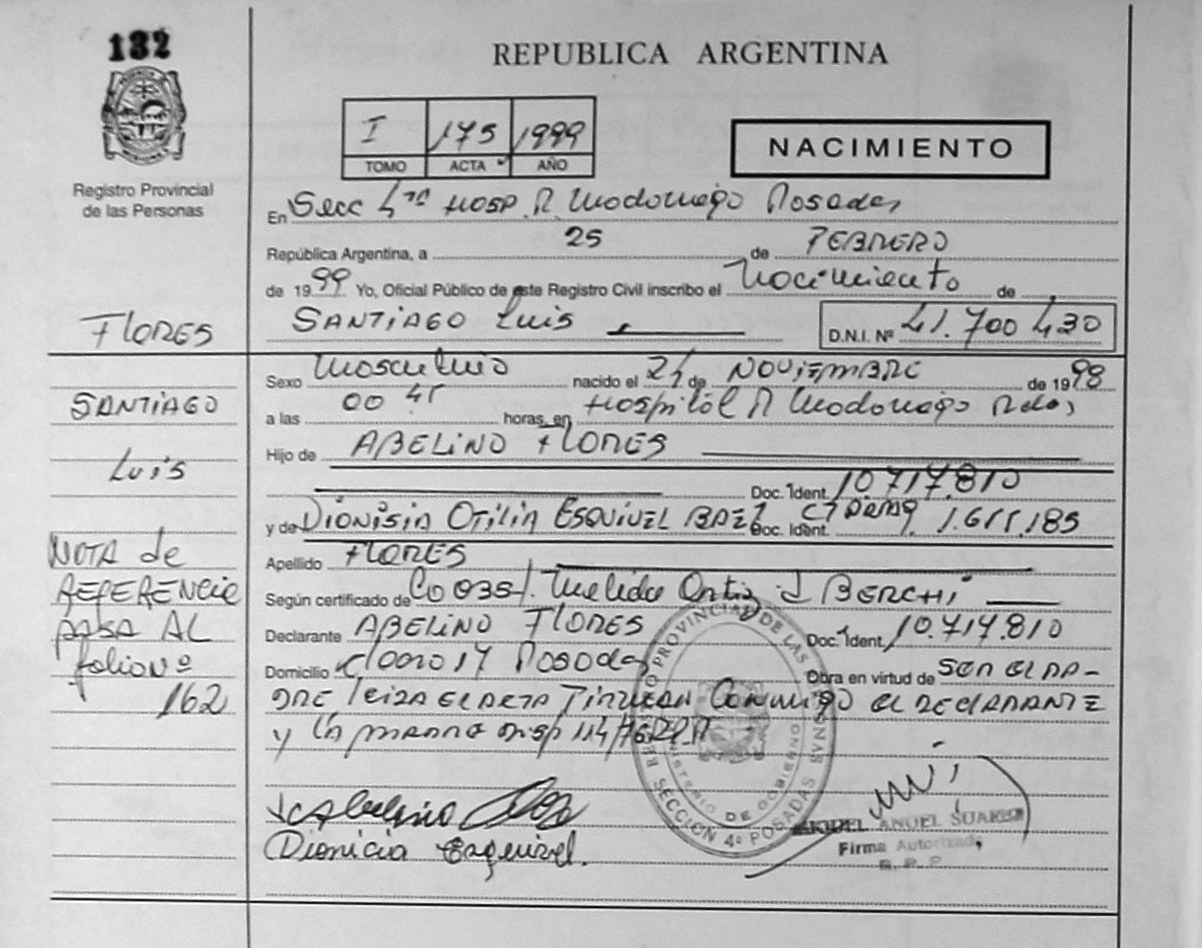 132
REPUBLICA ARGENTINA
I 175 1999
TOMO ACTA AÑO
NACIMIENTO
Registro Provincial
de las Personas
En Secc 4ta HOSP. R. Madariaga Posadas
República Argentina, a 25 de FEBRERO
de 1999 Yo, Oficial Público de este Registro Civil inscribo el Nacimiento de
FLORES
SANTIAGO Luis
D.N.I. Nº 41.700 430
Sexo Masculino nacido el 21 de NOVIEMBRE de 1998
SANTIAGO
a las 00 45 horas, en Hospital R Madariaga Pdas
Luis
Hijo de ABELINO FLORES
Doc. Ident. 10.717.810
y de DIONISIA OTILIA ESQUIVEL BAEZ Doc. Ident. 1.611.185
NOTA de
REFERENCIA
PASA AL
folio nº
162
Apellido FLORES
Según certificado de Ortiz J BERCHI
Declarante ABELINO FLORES Doc. Ident. 10.717.810
Domicilio Posadas Obra en virtud de SER EL PA-
DRE leida EL ACTA FIRMAN Conmigo EL DECLARANTE
y LA MADRE DISP 114/76
REGISTRO PROVINCIAL DE LAS PERSONAS
MINISTERIO DE GOBIERNO
SECCION 4º POSADAS
Abelino Flores
Dionicia Esquivel.
MIGUEL ANGEL SUAREZ
Firma Autorizada
R. P. P.